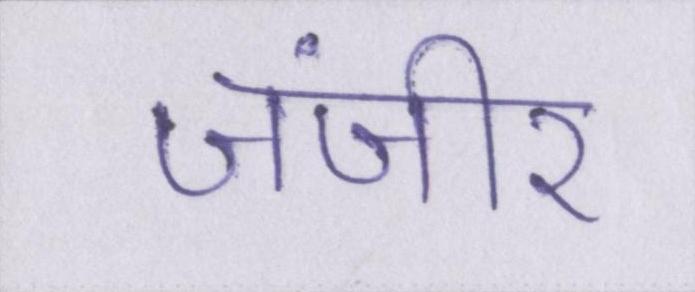 जंजीर